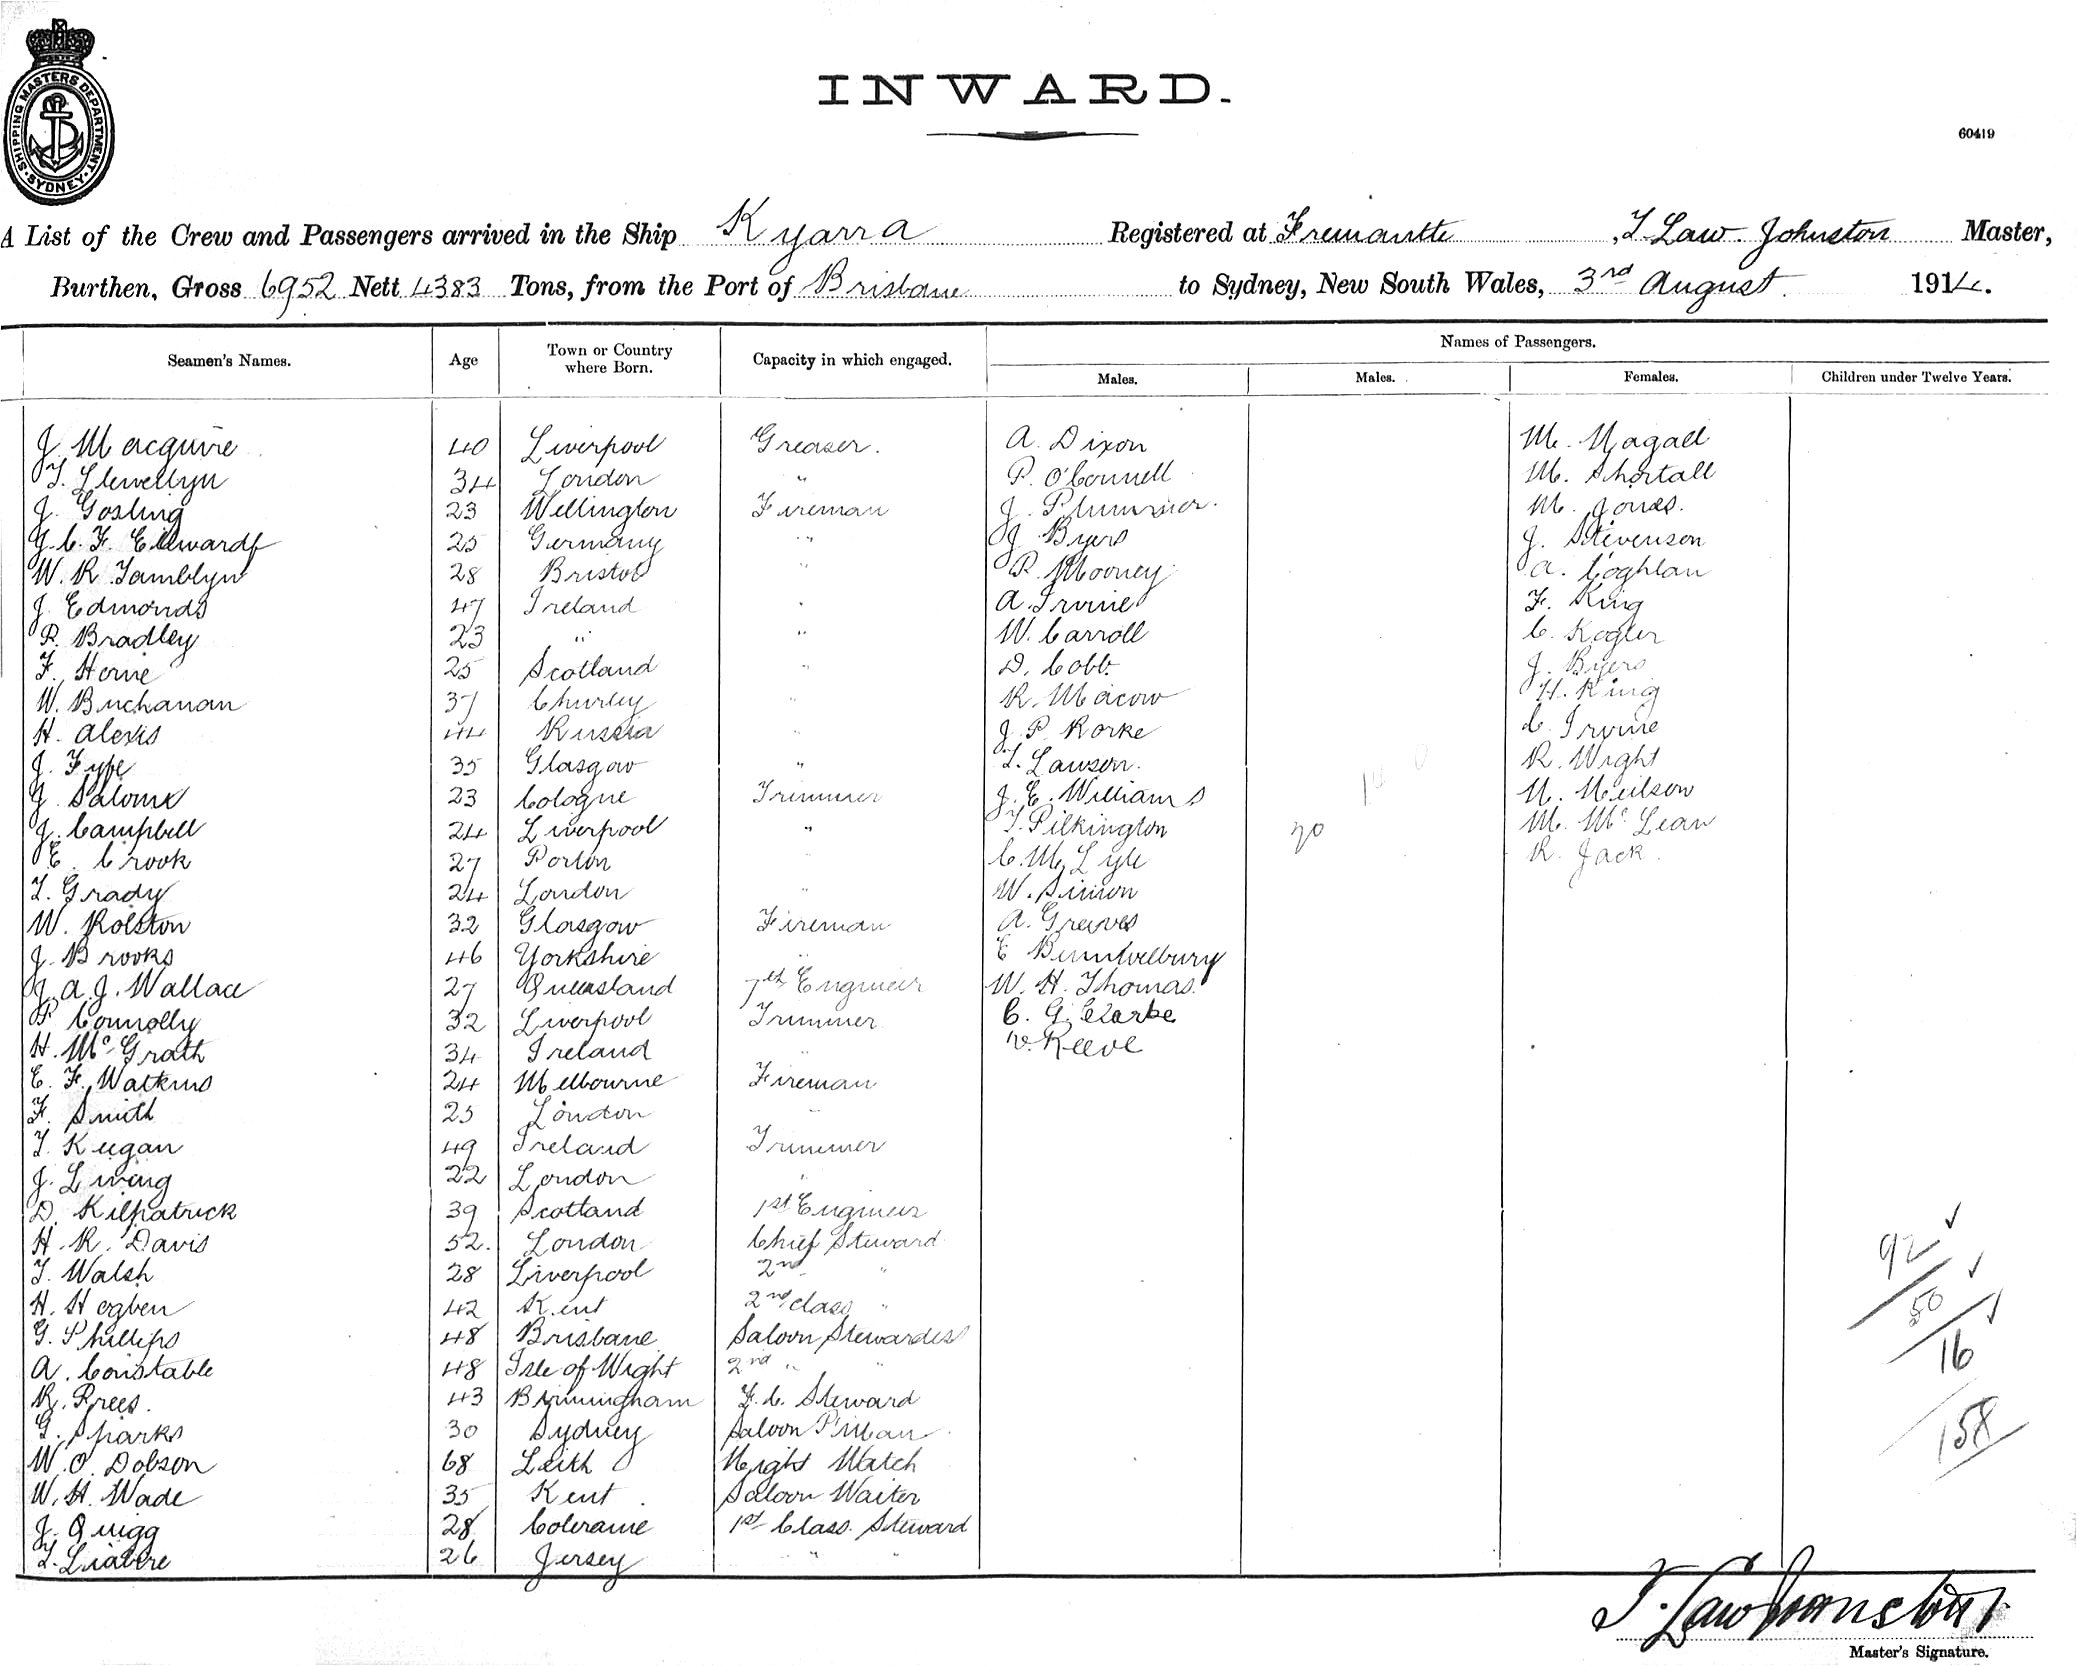 SHIPPING MASTERS DEPARTMENT. SYDNEY
INWARD.
60419
A List of the Crew and Passengers arrived in the Ship Kyarra Registered at Fremantle, T. Law. Johnston Master,
Burthen, Gross 6952 Nett 4383 Tons, from the Port of Brisbane to Sydney, New South Wales, 3rd August 1914.
Seamen's Names. Age Town or Country where Born. Capacity in which engaged. Names of Passengers.
Males. Males. Females. Children under Twelve Years.
J. Macguire 40 Liverpool Greaser. A. Dixon M. Magall
T. Llewellyn 34 London " P. O'Connell M. Shortall
J. Gosling 23 Wellington Fireman J. Plummer. M. Jones.
G. C. F. 25 Germany " J Byers J. Stevenson
W. R. Tamblyn 28 Bristol " P. Mooney A. Coghlan
J. Edmonds 47 Ireland " A. Irvine F. King
P. Bradley 23 " " W. Carroll C. Kogler
F. Horne 25 Scotland " D. Cobb. J. Byers
W. Buchanan 37 Churley " R. Macow H. King
H. Alexis 44 Russia " J. P. Rorke C. Irvine
J. Fyfe 35 Glasgow " T. Lawson. R. Wight
J. Salome 23 Cologne Trimmer J. E. Williams N. Neilson
J. Campbell 24 Liverpool " T. Pilkington 20 M. McLean
E. Crook 27 Porton " C. M. Lyle R. Jack.
T. Grady 24 London " W. Simon
W. Rolston 32 Glasgow Fireman A. Greeves
J. Brooks 46 Yorkshire " E
J. A. J. Wallace 27 Queensland 7th Engineer W. H. Thomas.
P Connolly 32 Liverpool Trimmer C. G. Clarke
H. McGrath 34 Ireland " W. Reeve
E. F. Watkins 24 Melbourne Fireman
F. Smith 25 London "
T. Keegan 49 Ireland Trimmer
J. Living 22 London "
D. Kilpatrick 39 Scotland 1st Engineer
H. R. Davis 52. London Chief Steward
T. Walsh 28 Liverpool 2nd " 92
H. Hogben 42 Kent 2nd class " 50
G. Phillips 48 Brisbane Saloon Stewardess 16
A. Constable 48 Isle of Wight 2nd " "
R. Prees. 43 Birmingham F. C. Steward
G. Sparks 30 Sydney Saloon P'man 158
W. O. Dobson 68 Leith Night Watch
W. H. Wade 35 Kent Saloon Waiter
J. Quigg 28 Coleraine 1st Class. Steward
T. 26 Jersey " "
T. Law Johnston
Master's Signature.